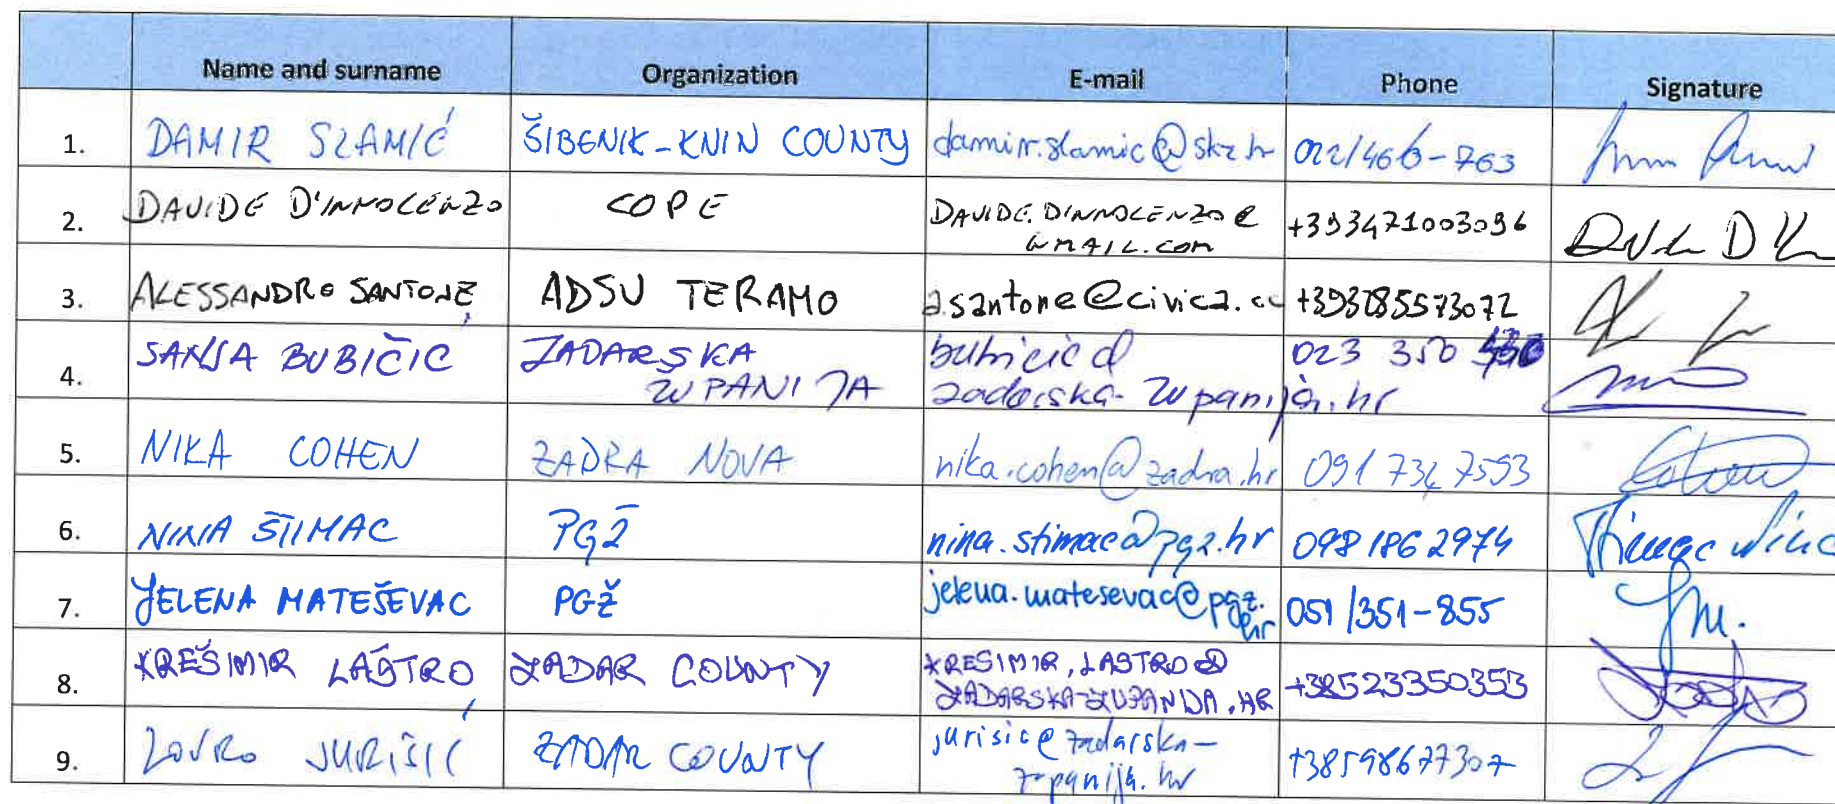 Name and surname Organization E-mail Phone Signature
1. DAMIR SLAMIĆ ŠIBENIK-KNIN COUNTY damir.slamic@skz.hr 022/466-763
2. DAVIDE D'INNOLENZO COPE DAVIDE.DINNOLENZO@ +393471003096
GMAIL.COM
3. ALESSANDRO SANTONE ADSU TERAMO a.santone@civica.cc +393285573072
4. SANJA BUBIČIĆ ZADARSKA bubicic@ 023 350
ŽUPANIJA zadarska-zupanija.hr
5. NIKA COHEN ZADRA NOVA nika.cohen@zadra.hr 091 734 7593
6. NINA ŠTIMAC PGŽ nina.stimac@pgz.hr 098 186 2974
Štimac Nina
7. JELENA MATEŠEVAC PGŽ jelena.matesevac@pgz. 051/351-855
hr
JM.
8. KREŠIMIR LAŠTRO ZADAR COUNTY KRESIMIR.LASTRO@ +38523350353
ZADARSKA-ZUPANIJA.HR
9. LOVRO JURIŠIĆ ZADAR COUNTY jurisic@zadarska- +38598677307
zupanija.hr